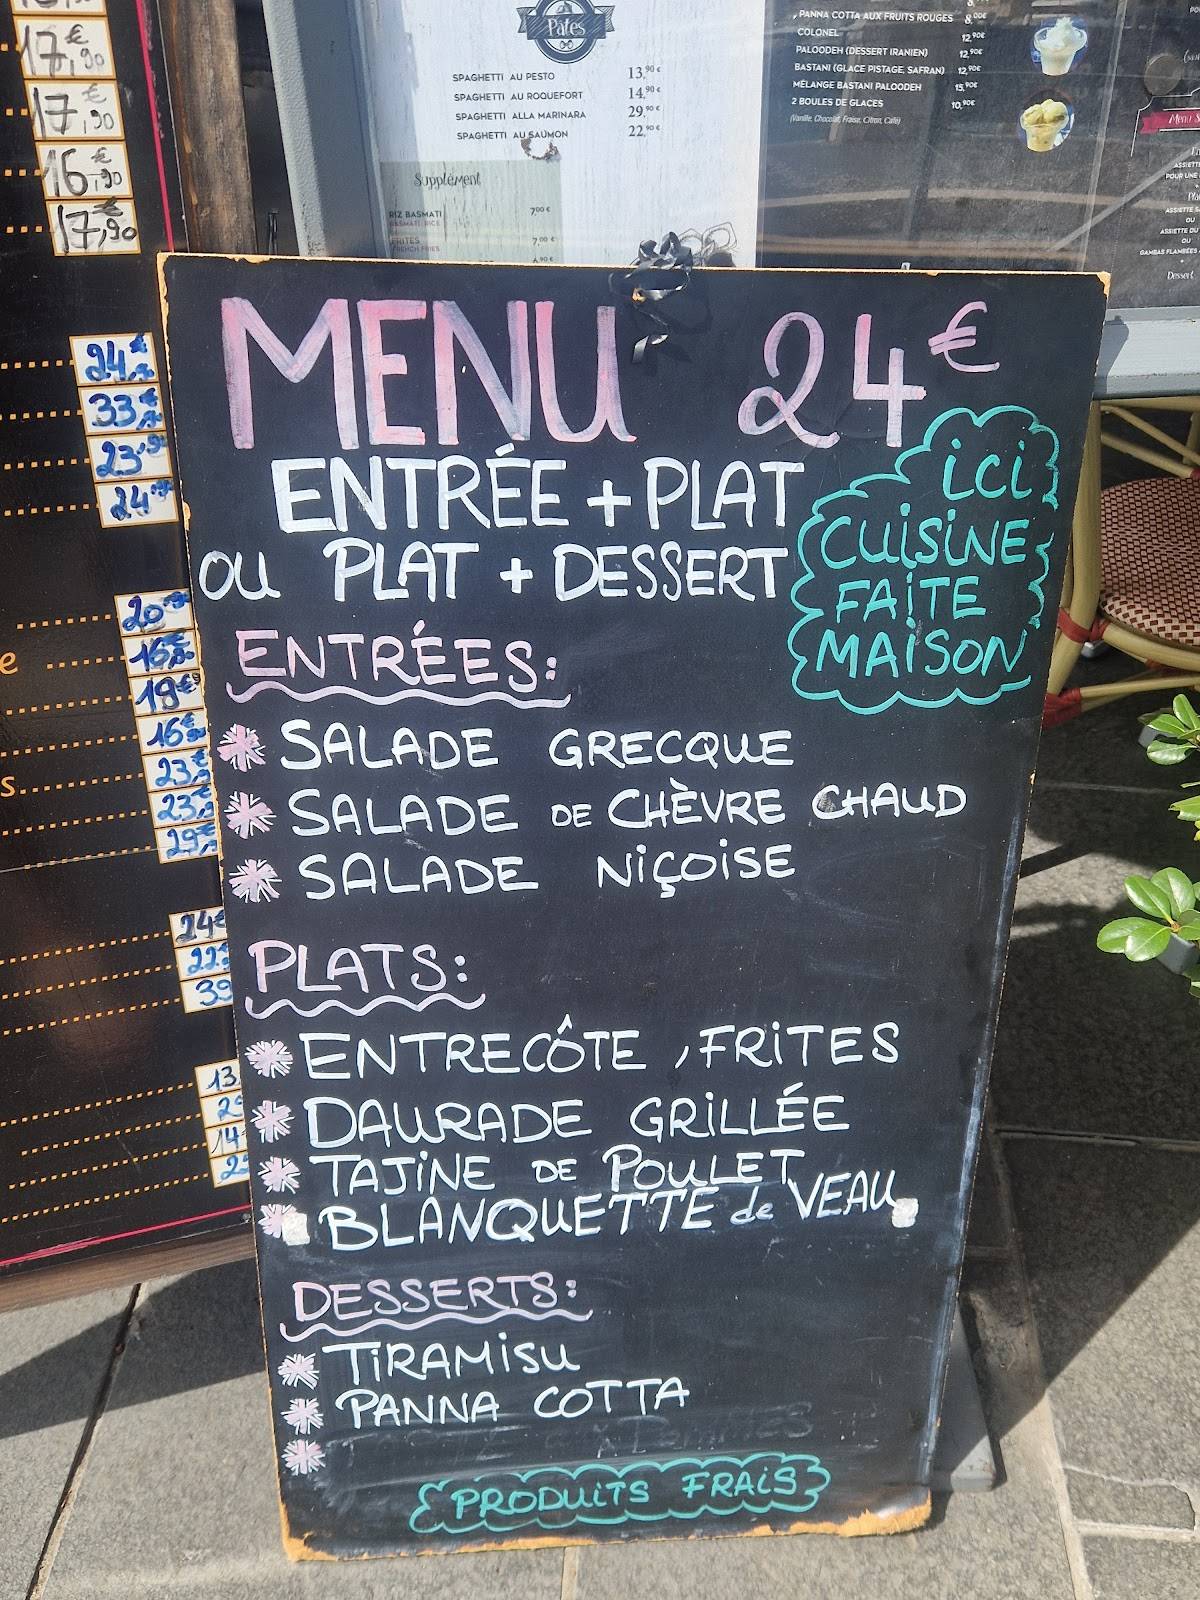 17,90€
17,90€
16,90€
17,90€
24
33
23,90
24
20
16
19€
16€
23
23
29
24€
22
39
13
14
Pâtes
SPAGHETTI AU PESTO 13,90 €
SPAGHETTI AU ROQUEFORT 14,90 €
SPAGHETTI ALLA MARINARA 29,90 €
SPAGHETTI AU SAUMON 22,90 €
Supplément
RIZ BASMATI 7,00 €
BASMATI RICE
FRITES 7,00 €
FRENCH FRIES
PANNA COTTA AUX FRUITS ROUGES
COLONEL 12,90€
PALOODEH (DESSERT IRANIEN) 12,90€
BASTANI (GLACE PISTAGE, SAFRAN) 12,90€
MÉLANGE BASTANI PALOODEH 15,90€
2 BOULES DE GLACES 10,90€
(Vanille, Chocolat, Fraise, Citron, Café)
Menu
POUR UNE
OU
ASSIETTE DU
OU
GAMBAS FLAMBÉES
Dessert
MENU 24€
ENTRÉE + PLAT
OU PLAT + DESSERT
ICI
CUISINE
FAITE
MAISON
ENTRÉES:
SALADE GRECQUE
SALADE DE CHÈVRE CHAUD
SALADE NIÇOISE
PLATS:
ENTRECÔTE, FRITES
DAURADE GRILLÉE
TAJINE DE POULET
BLANQUETTE de VEAU
DESSERTS:
TIRAMISU
PANNA COTTA
PRODUITS FRAIS